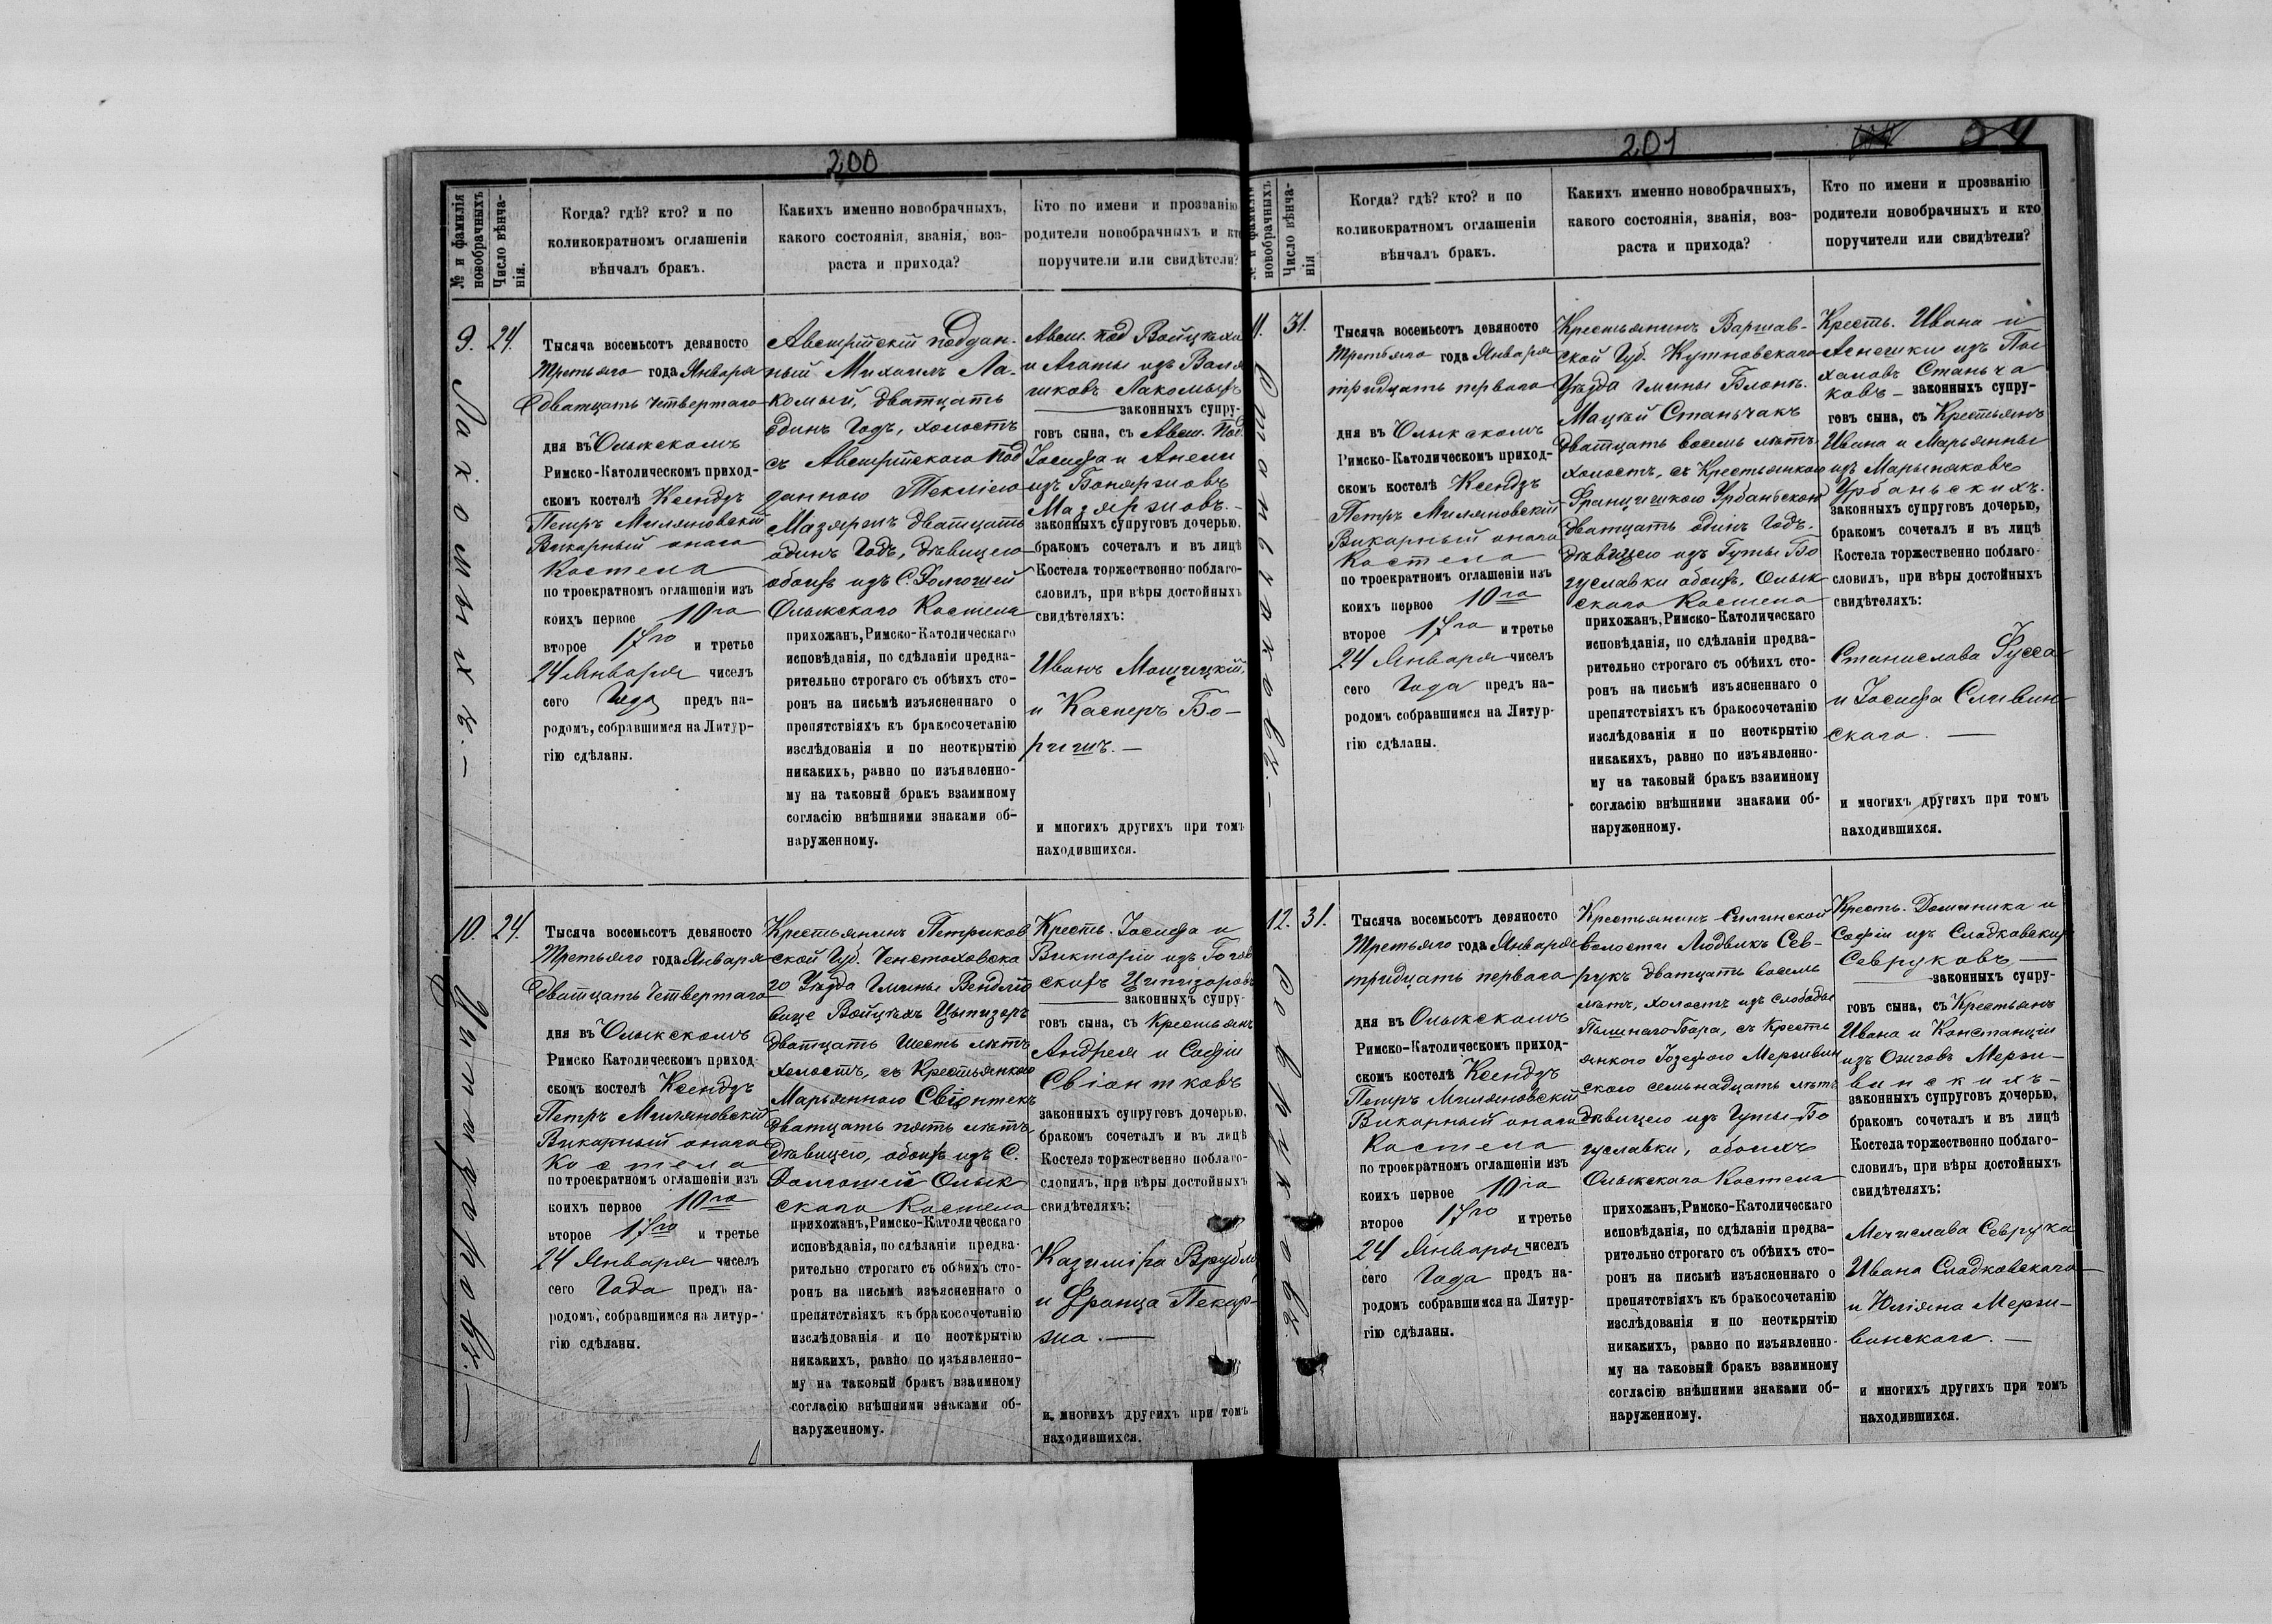 200
№ и фамилія новобрачныхъ
Число вѣнча-
нія.
Когда? гдѣ? кто? и по
коликократномъ оглашеніи
вѣнчалъ бракъ.
Какихъ именно новобрачныхъ,
какого состоянія, званія, воз-
раста и прихода?
Кто по имени и прозванію
родители новобрачныхъ и кто
поручители или свидѣтели?
9.
24.
Тысяча восемьсотъ девяносто
Третьяго года Января
Дватцать Четвертаго
дня въ Олыкскомъ
Римско-Католическомъ приход-
скомъ костелѣ Ксендзъ
Петръ Миляновскій
Викарный онаго
Костела
по троекратномъ оглашеніи изъ
коихъ первое 10го
второе 17го и третье
24 Января чиселъ
сего Года предъ на-
родомъ, собравшимся на Литур-
гію сдѣланы.
Австрійскій поддан-
ный Михаилъ Ла-
комый, дватцать
одинъ Годъ, холостъ
съ Австрійского под
данною Теклією
Мазяржъ дватцать
одинъ Годъ, дѣвицею
обоихъ изъ С.
Олыкского Костела
прихожанъ, Римско-Католическаго
исповѣданія, по сдѣланіи предва-
рительно строгаго съ обѣихъ сто-
ронъ на письмѣ изъясненнаго о
препятствіяхъ къ бракосочетанію
изслѣдованія и по неоткрытію
никакихъ, равно по изъявленно-
му на таковый бракъ взаимному
согласію внѣшними знаками об-
наруженному.
Авст. под Войцѣха
и Агаты изъ
Лакомыхъ
законныхъ супру-
говъ сына, съ Авст. Под.
Іосифа и Анели
изъ
Мазяржовъ. -
законныхъ супруговъ дочерью,
бракомъ сочеталъ и въ лицѣ
Костела торжественно поблаго-
словилъ, при вѣры достойныхъ
свидѣтеляхъ:
Иванъ Мощицкій,
и Касперъ Бо-
ригъ. —
и многихъ другихъ при томъ
находившихся.
10.
24.
Тысяча восемьсотъ девяносто
Третьяго года Января
Дватцать Четвертаго
дня въ Олыкскомъ
Римско Католическомъ приход
скомъ костелѣ Ксендзъ
Петръ Миляновскій
Викарный онаго
Костела
по троекратномъ оглашеніи изъ
коихъ первое 10го
второе 17го и третье
24 Января чиселъ
сего Года предъ на-
родомъ, собравшимся на литур-
гію сдѣланы.
Крестьянинъ Петриков
ской Губ. Ченстоховска
го Уѣзда Гмины
вице Войцѣхъ Цыпизоръ
дватцать шесть лѣтъ
холостъ, съ Крестьянкою
Марьянною Свіонтекъ
дватцать пять лѣтъ,
дѣвицею, обоихъ изъ С.
Долгошей Олык
ского Костела
прихожанъ, Римско-Католическаго
исповѣданія, по сдѣланіи предва-
рительно строгаго съ обѣихъ сто-
ронъ на письмѣ изъясненнаго о
препятствіяхъ къ бракосочетанію
изслѣдованія и по неоткрытію
никакихъ, равно по изъявленно-
му на таковый бракъ взаимному
согласію внѣшними знаками об-
наруженному.
Кресть. Іосифа и
Викторіи изъ
законныхъ супру-
говъ сына, съ Крестьянъ
Андрея и Софіи
Свіонтковъ
законныхъ супруговъ дочерью,
бракомъ сочеталъ и въ лицѣ
Костела торжественно поблаго-
словилъ, при вѣры достойныхъ
свидѣтеляхъ:
Казиміра Врубля
и Франца Пекар-
жа. —
и многихъ другихъ при томъ
находившихся.
201
24
№ и фамилія новобрачныхъ
Число вѣнча-
нія
Когда? гдѣ? кто? и по
коликократномъ оглашеніи
вѣнчалъ бракъ.
Какихъ именно новобрачныхъ,
какого состоянія, званія, воз-
раста и прихода?
Кто по имени и прозванію
родители новобрачныхъ и кто
поручители или свидѣтели?
11.
31.
Тысяча восемьсотъ девяносто
Третьяго года Января
тридцать перваго
дня въ Олыкскомъ
Римско-Католическомъ приход-
скомъ костелѣ Ксендзъ
Петръ Миляновскій
Викарный онаго
Костела
по троекратномъ оглашеніи изъ
коихъ первое 10го
второе 17го и третье
24 Января чиселъ
сего Года предъ на-
родомъ собравшимся на Литур-
гію сдѣланы.
Крестьянинъ Варшав-
ской Губ. Кутновского
Уѣзда Гмины Блонк.
Мацѣй Станьчакъ
дватцать восемь лѣтъ
холостъ, съ Крестьянкою
Францишкою Урбаньскою
дватцать одинъ Годъ.
дѣвицею изъ Гуты Бо
гуславки обоихъ. Олык
ского Костела
прихожанъ, Римско-Католическаго
исповѣданія, по сдѣланіи предва-
рительно строгаго съ обѣихъ сто-
ронъ на письмѣ изъясненнаго о
препятствіяхъ къ бракосочетанію
изслѣдованія и по неоткрытію
никакихъ, равно по изъявленно-
му на таковый бракъ взаимному
согласію внѣшними знаками об-
наруженному.
Кресть. Ивана и
Агнешки изъ
Станьча
ковъ — законныхъ супру-
говъ сына, съ Крестьянъ
Ивана и Марьянны
изъ Марыняковъ
Урбаньскихъ.
законныхъ супруговъ дочерью,
бракомъ сочеталъ и въ лицѣ
Костела торжественно поблаго-
словилъ, при вѣры достойныхъ
свидѣтеляхъ:
Станислава Фусса
и Іосифа Сливин-
ского. —
и многихъ другихъ при томъ
находившихся.
12.
31.
Тысяча восемьсотъ девяносто
Третьяго года Января
тридцать перваго
дня въ Олыкскомъ
Римско-Католическомъ приход-
скомъ костелѣ Ксендзъ
Петръ Миляновскій
Викарный онаго
Костела
по троекратномъ оглашеніи изъ
коихъ первое 10го
второе 17го и третье
24 Января чиселъ
сего Года предъ на-
родомъ собравшимся на Литур-
гію сдѣланы.
Крестьянинъ Силинской
волости Людвикъ Сев-
рукъ дватцать восемь
лѣтъ, холостъ изъ слободы
съ Кресть
янкою Іозефою Мержвин
ского семьнадцать лѣтъ
дѣвицею изъ Гуты-Бо
гуславки, обоихъ
Олыкского Костела
прихожанъ, Римско-Католическаго
исповѣданія, по сдѣланіи предва-
рительно строгаго съ обѣихъ сто-
ронъ на письмѣ изъясненнаго о
препятствіяхъ къ бракосочетанію
изслѣдованія и по неоткрытію
никакихъ, равно по изъявленно-
му на таковый бракъ взаимному
согласію внѣшними знаками об-
наруженному.
Кресть. Доминика и
Софіи изъ Сладковских
Севруковъ —
законныхъ супру-
говъ сына, съ Крестьянъ
Ивана и Констанціи
изъ Ожговъ Мержи-
винскихъ —
законныхъ супруговъ дочерью,
бракомъ сочеталъ и въ лицѣ
Костела торжественно поблаго-
словилъ, при вѣры достойныхъ
свидѣтеляхъ:
Мечислава Севрука
Ивана Сладковскаго
и Юліяна Мержи-
винскаго. —
и многихъ другихъ при томъ
находившихся.